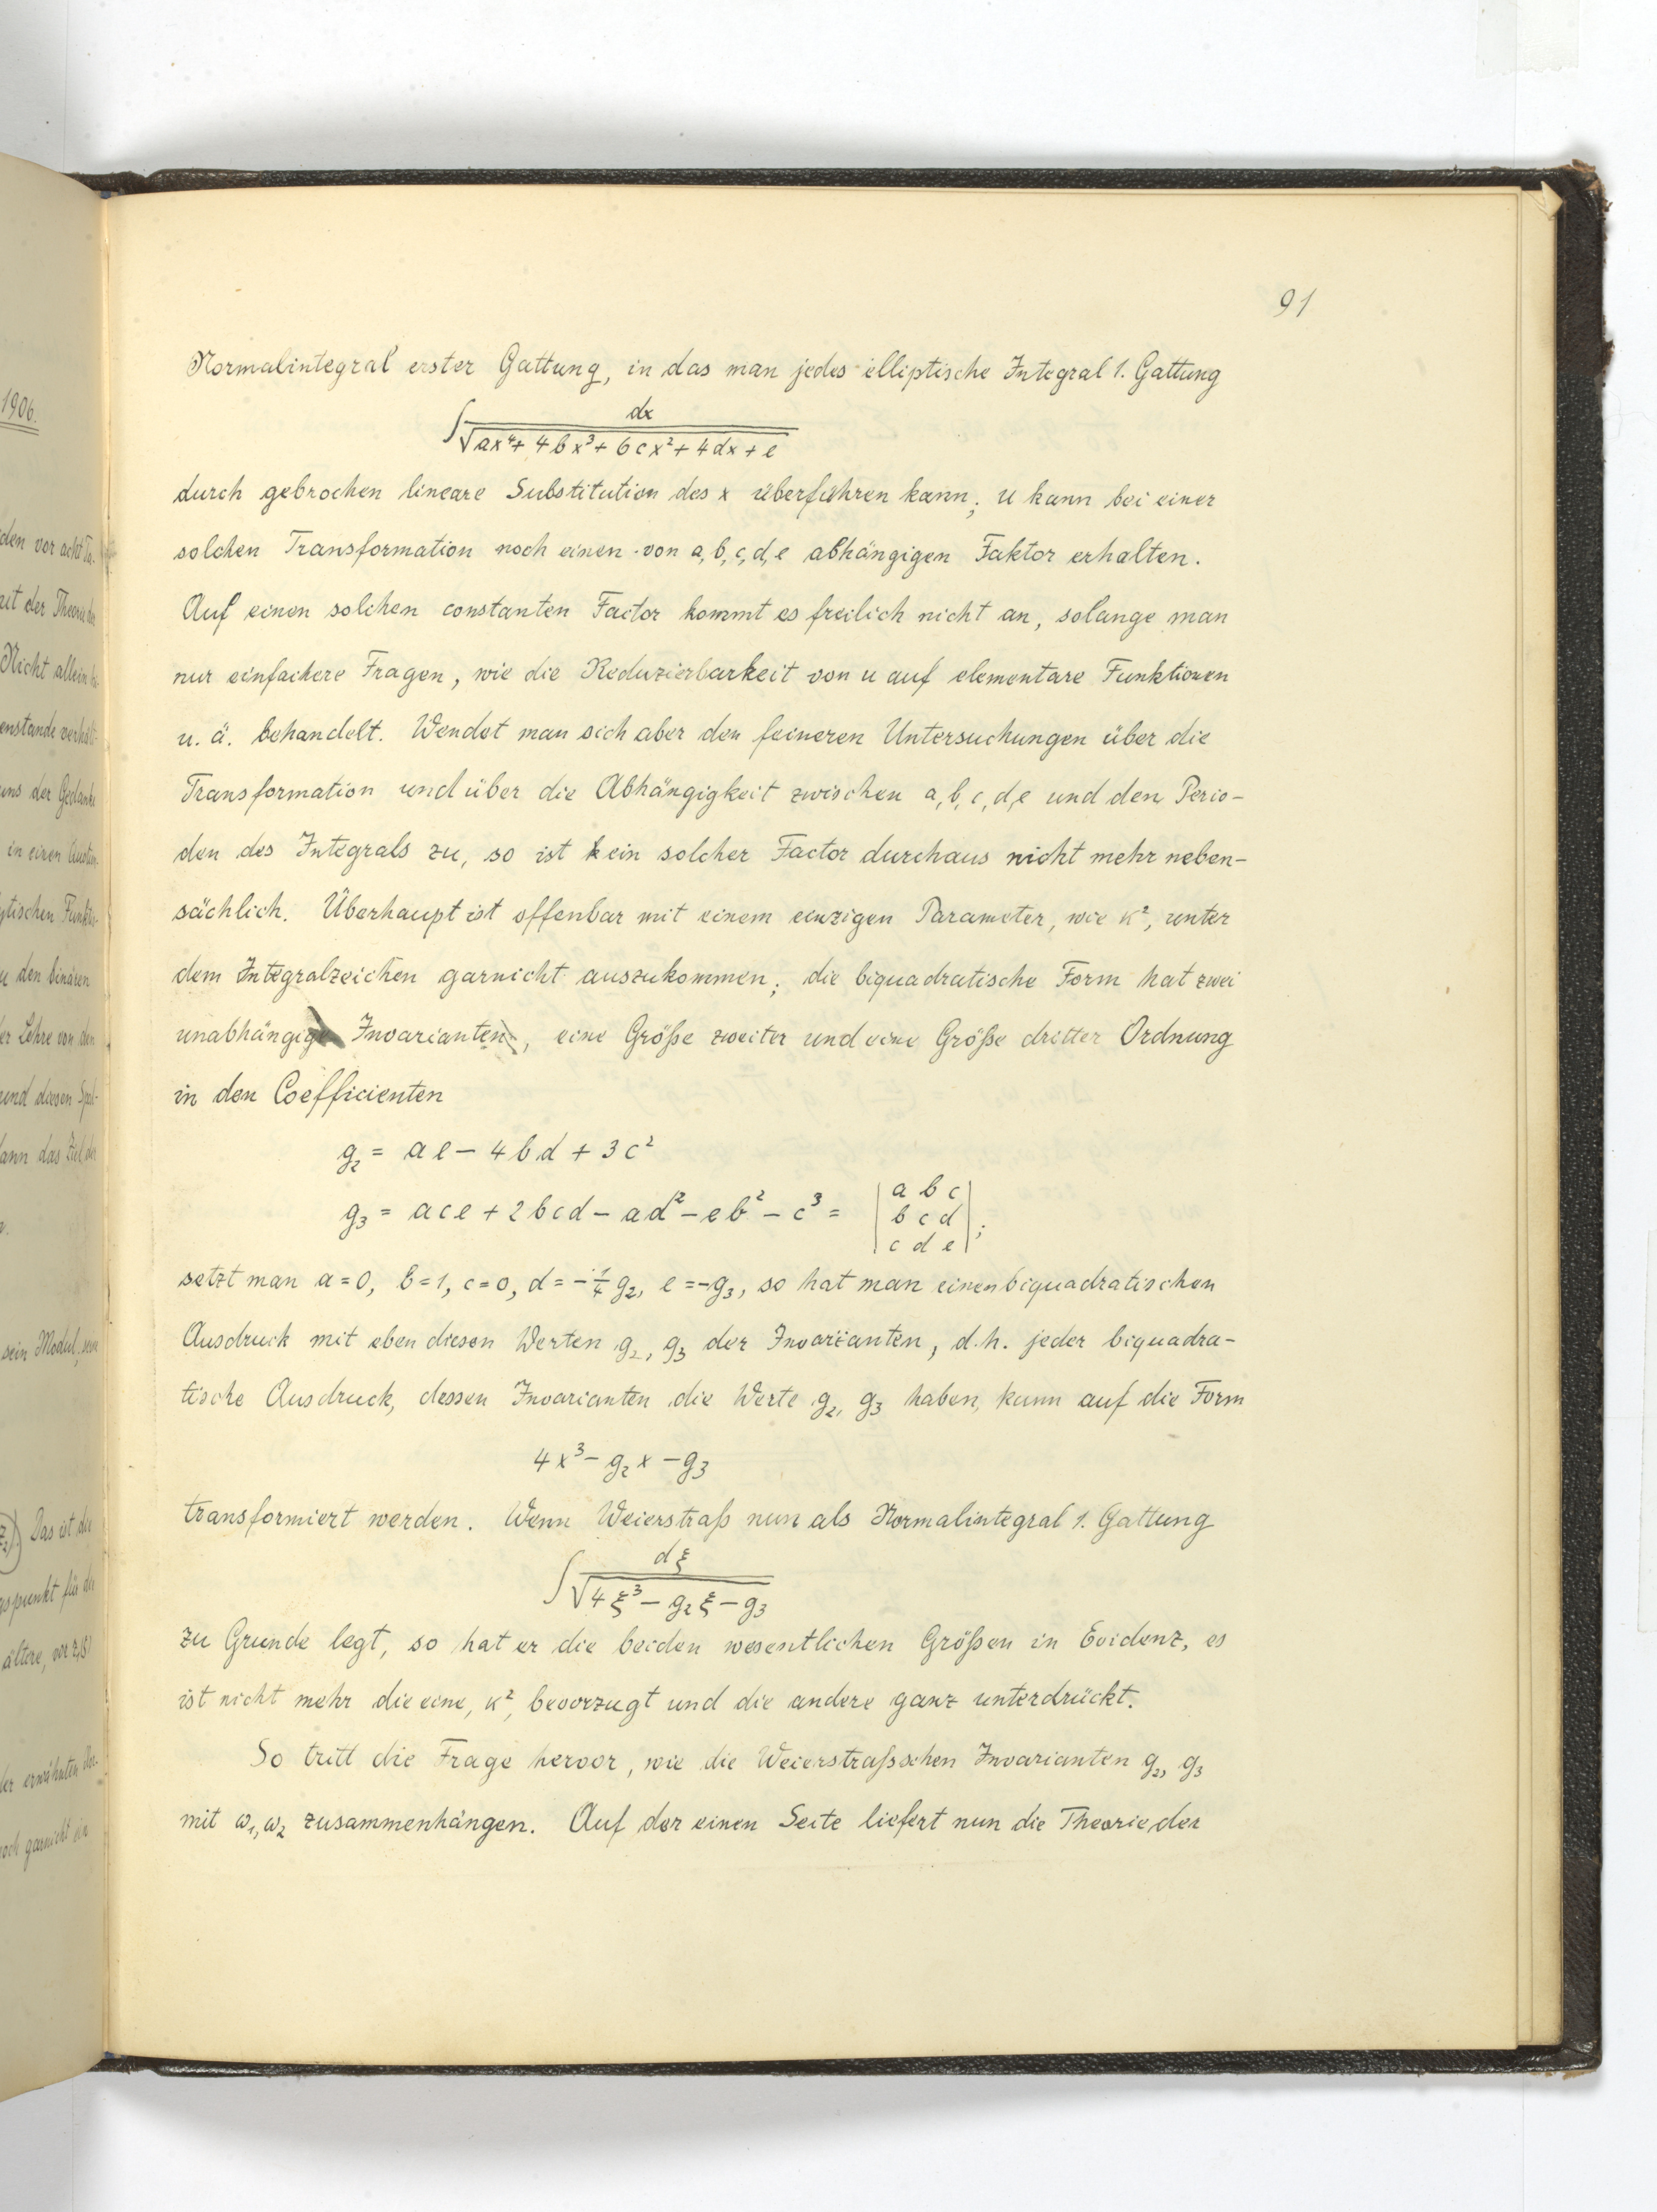 1906.
91
Normalintegral erster Gattung, in das man jedes elliptische Integral 1. Gattung
∫ dx / √ax⁴ + 4bx³ + 6cx² + 4dx + e
durch gebrochen lineare Substitution des x überführen kann; u kann bei einer
solchen Transformation noch einen von a, b, c, d, e abhängigen Faktor erhalten.
Auf einen solchen constanten Factor kommt es freilich nicht an, solange man
nur einfachere Fragen, wie die Reduzierbarkeit von u auf elementare Funktionen
u. ä. behandelt. Wendet man sich aber den feineren Untersuchungen über die
Transformation und über die Abhängigkeit zwischen a, b, c, d, e und den Perio-
den des Integrals zu, so ist ein solcher Factor durchaus nicht mehr neben-
sächlich. Überhaupt ist offenbar mit einem einzigen Parameter, wie κ², unter
dem Integralzeichen garnicht auszukommen; die biquadratische Form hat zwei
unabhängige Invarianten, eine Größe zweiter und eine Größe dritter Ordnung
in den Coefficienten
g₂ = ae − 4bd + 3c²
g₃ = ace + 2bcd − ad² − eb² − c³ = | a b c |
| b c d | ;
| c d e |
setzt man a = 0, b = 1, c = 0, d = −¼ g₂, e = −g₃, so hat man einen biquadratischen
Ausdruck mit eben diesen Werten g₂, g₃ der Invarianten, d.h. jeder biquadra-
tische Ausdruck, dessen Invarianten die Werte g₂, g₃ haben, kann auf die Form
4x³ − g₂x − g₃
transformiert werden. Wenn Weierstraß nun als Normalintegral 1. Gattung
∫ dξ / √4ξ³ − g₂ξ − g₃
zu Grunde legt, so hat er die beiden wesentlichen Größen in Evidenz, es
ist nicht mehr die eine, κ², bevorzugt und die andere ganz unterdrückt.
So tritt die Frage hervor, wie die Weierstraßschen Invarianten g₂, g₃
mit ω₁, ω₂ zusammenhängen. Auf der einen Seite liefert nun die Theorie der